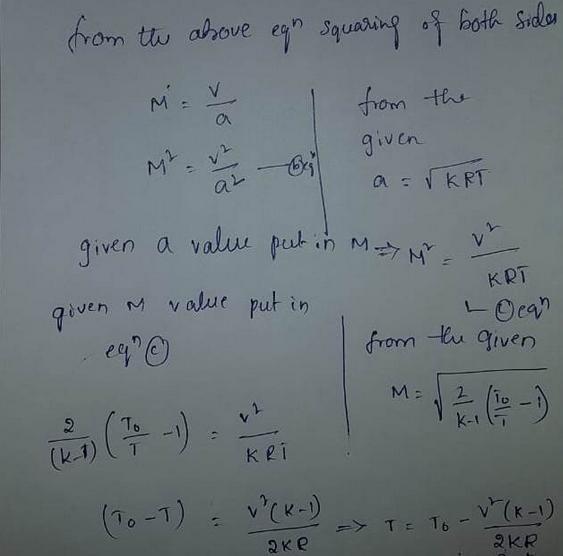 from the above eqⁿ squaring of both sides
M = V/a
M² = V²/a² — ⓑ eqⁿ
from the
given
a = √KRT
given a value put in M ⇒ M² = V²/KRT
└ ⓒ eqⁿ
given M value put in
eqⁿ ⓒ
from the given
M = √(2/(K-1) (T₀/T - 1))
2/(K-1) (T₀/T - 1) = V²/KRT
(T₀ - T) = V²(K-1)/2KR ⇒ T = T₀ - V²(K-1)/2KR